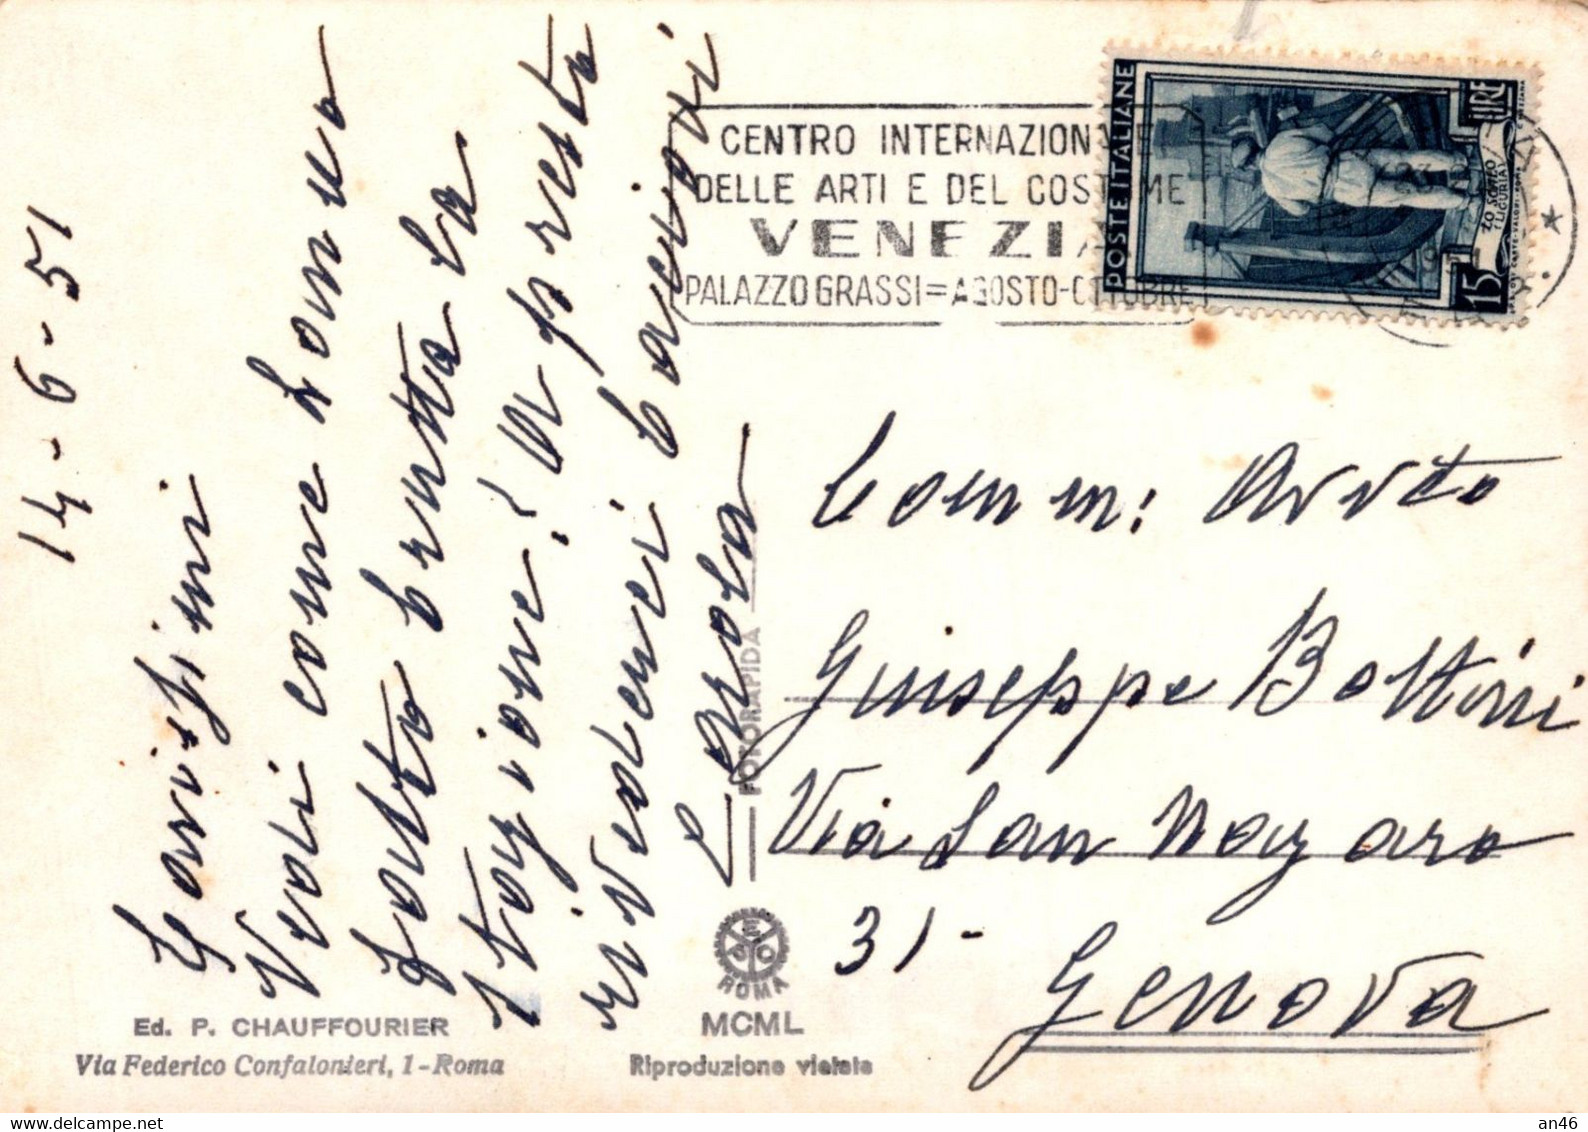 14-6-51
Carissimi
Vedi come hanno
fatto brutta la
stazione! A presto
rivederci bacioni
Carola
CENTRO INTERNAZIONALE
DELLE ARTI E DEL COSTUME
VENEZIA
PALAZZO GRASSI=AGOSTO-OTTOBRE
POSTE ITALIANE
LIRE
15
LO SCAFO
(LIGURIA)
Comm: Avv to
Giuseppe Bottini
Via San Nazaro
31-
Genova
FOTORAPIDA
ROMA
MCML
Riproduzione vietata
Ed. P. CHAUFFOURIER
Via Federico Confalonieri, 1-Roma
delcampe.net
an46